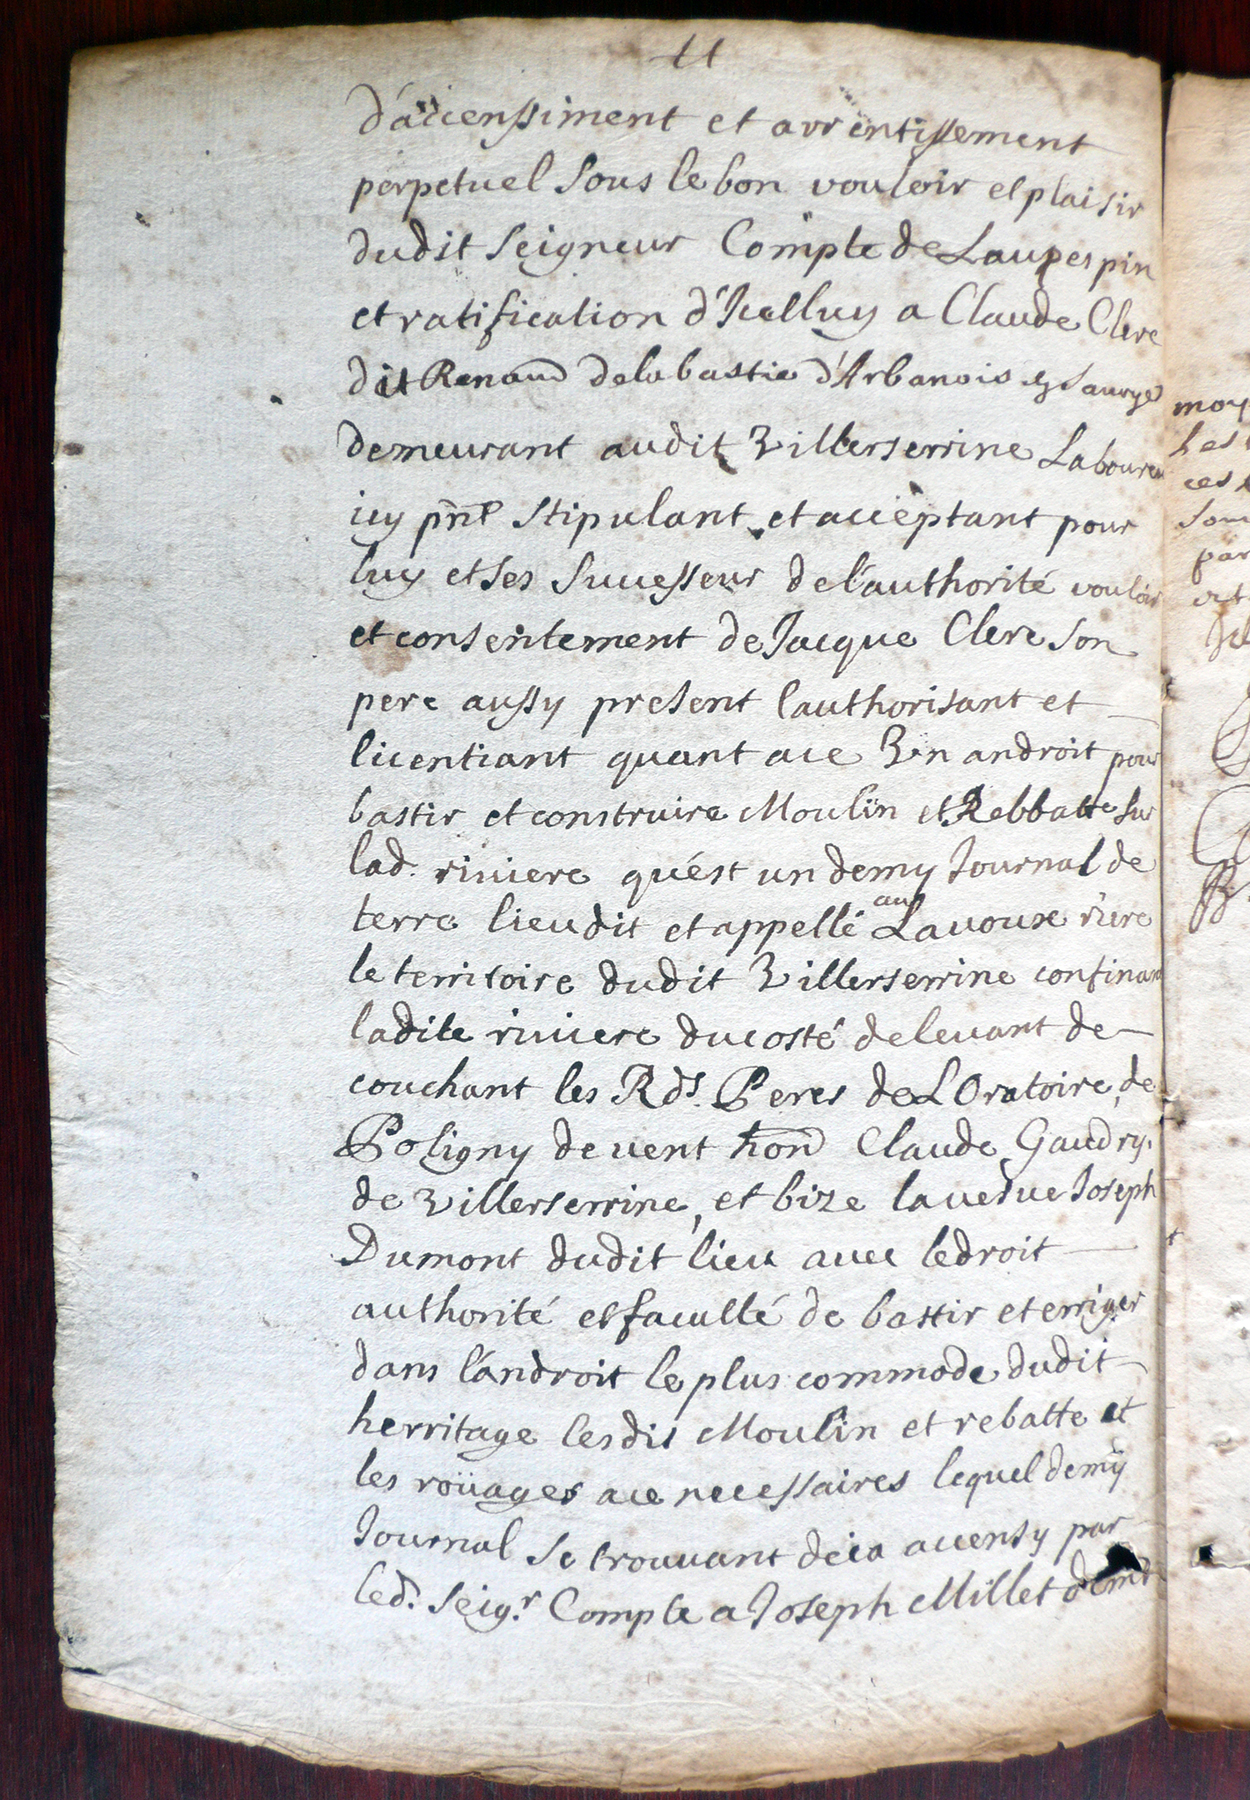 11
d'accenssiment et arrentissement
perpetuel sous le bon vouloir et plaisir
dudit seigneur Compte de Laupespin
et ratification d'Icelluy a Claude Clerc
dit Renaud de la bastie d'Arbanois
demeurant audit Villerserrine Laboureu
icy pñt stipulant et acceptant pour
luy et ses successeur de l'authorité vouloir
et consentement de Jacque Clerc son
pere aussy present lauthorisant et
licentiant quant ace Vn androit pour
bastir et construire Moulin et Rebbatte sur
lad. riviere qu'est un demy Journal de
terre lieudit et appellé au Lavoux rière
le territoire dudit Villerserrine confinant
ladite riviere du costé de levant de
couchant les Rds. Peres de L'Oratoire de
Poligny de vent hon Claude Gaudry.
de Villerserrine, et bize la vefve Joseph
Dumont dudit lieu avec le droit
authorité et faculté de bastir et erriger
dans l'androit le plus commode dudit
herritage lesdis Moulin et rebatte et
les roüages ace necessaires lequel demÿ
Journal se trouvant deia accensy par
led. seigr. Compte a Joseph Millet
moy
les
ces
sou
par